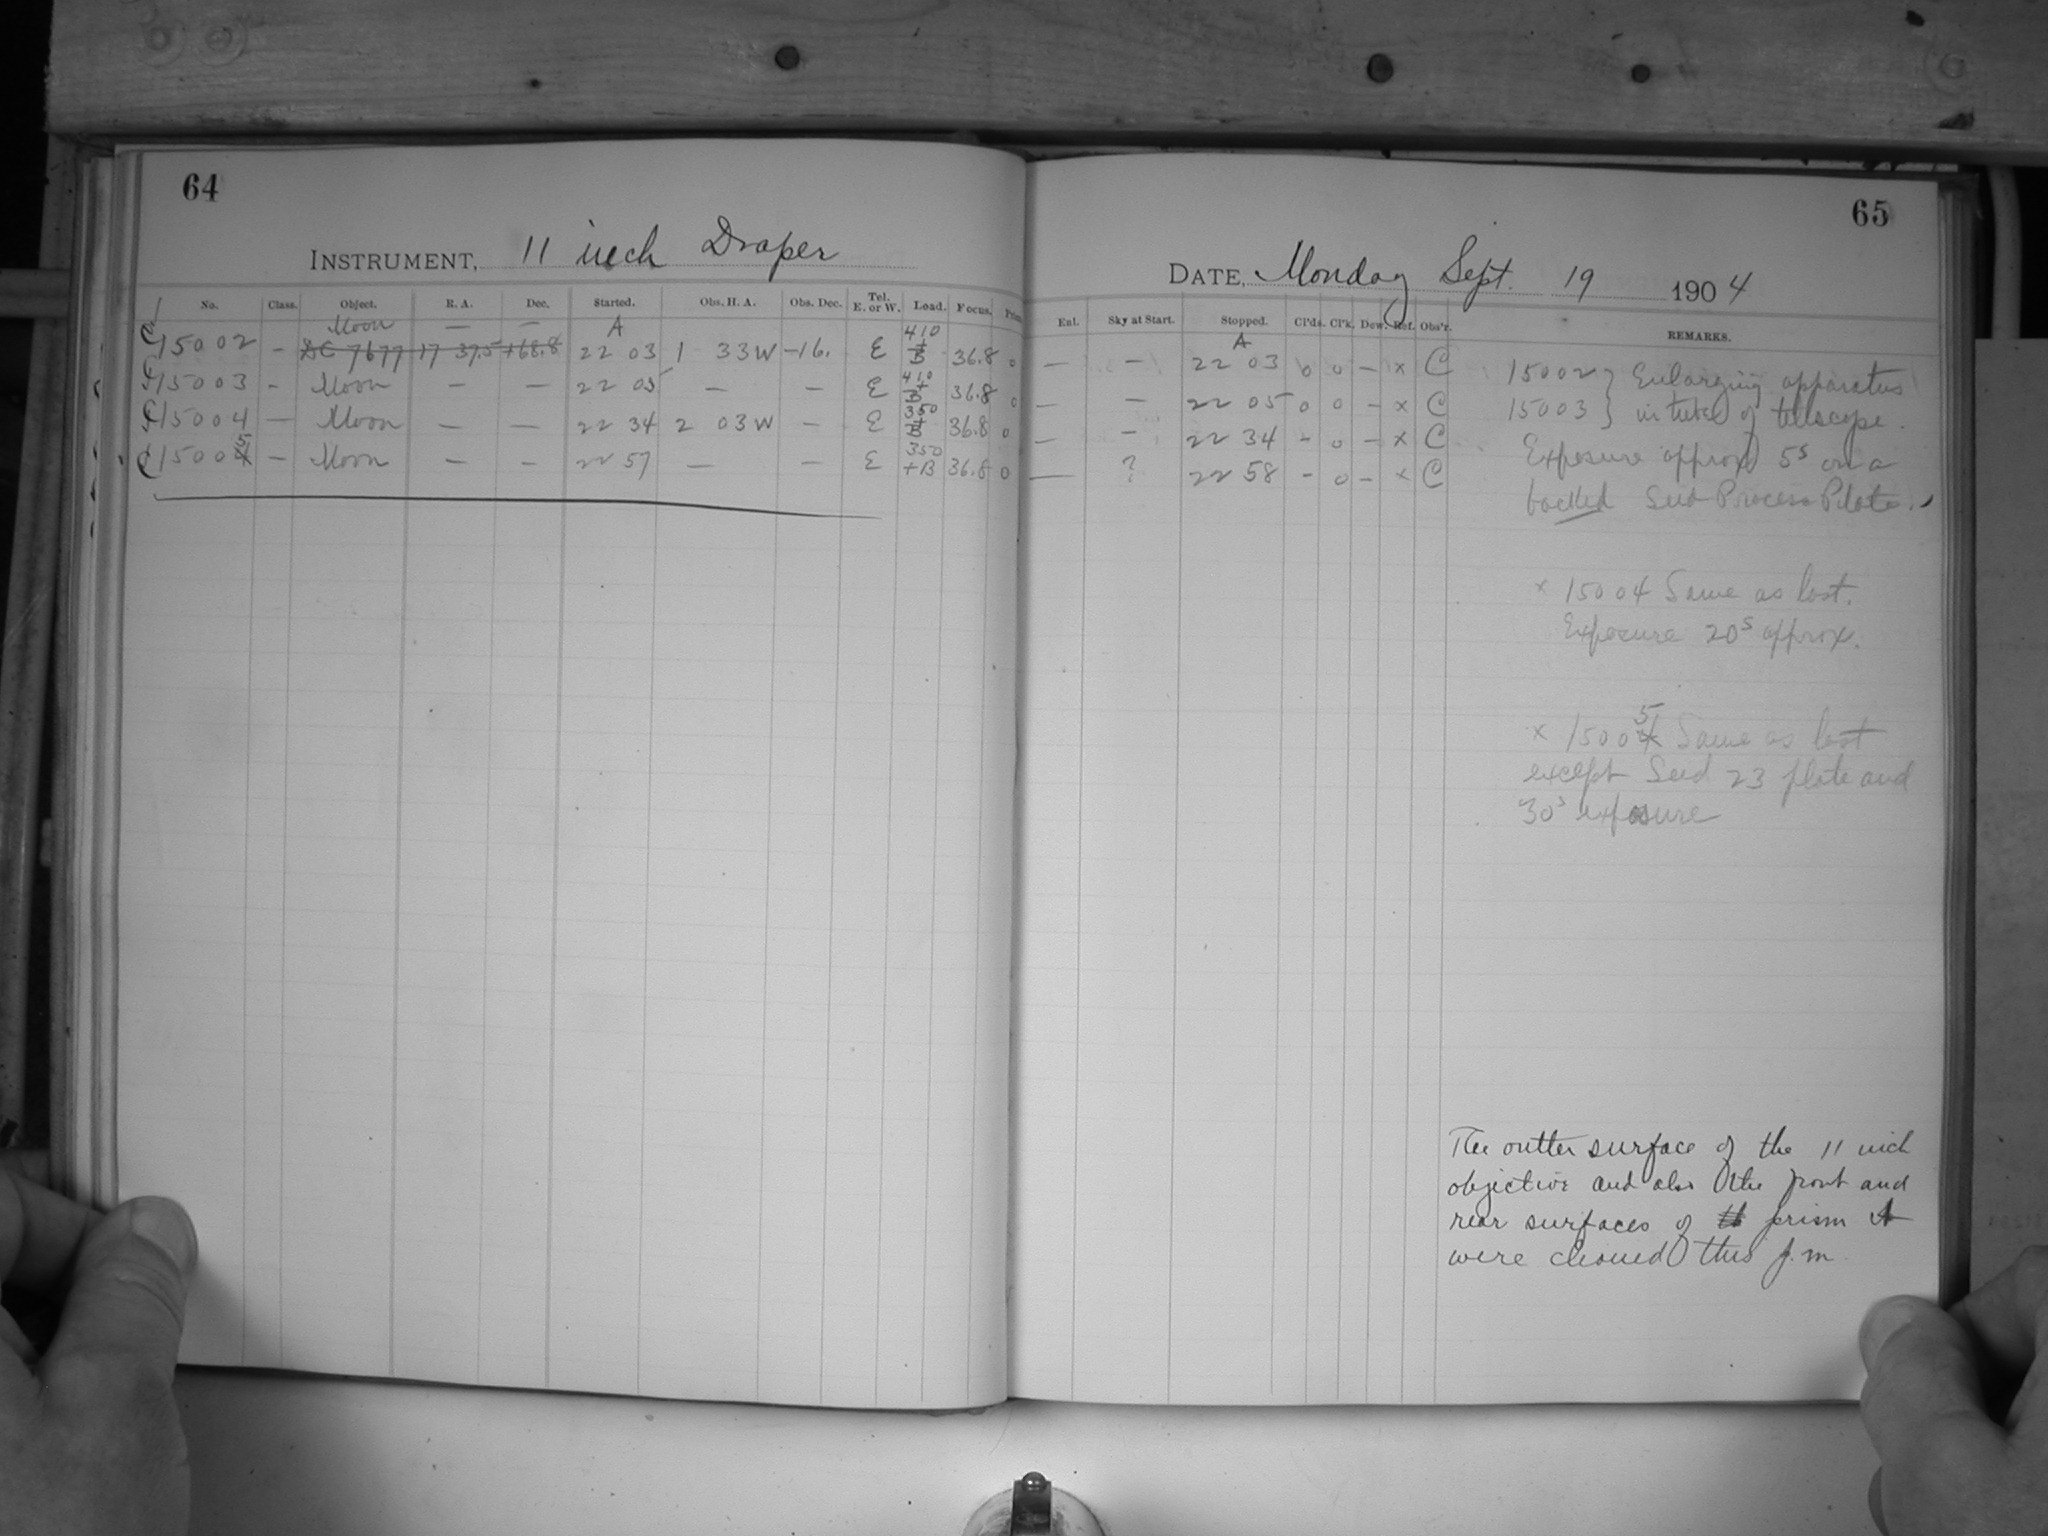 64
INSTRUMENT, 11 inch Draper
No. Class. Object. R. A. Dec. Started. Obs. H. A. Obs. Dec. Tel. E. or W. Load. Focus. Prism
Moon — — A 410
C 15002 - DC 7677 17 37.5 +68.8 22 03 1 33W -16. E + B 36.8 0
C 15003 - Moon — — 22 05 — — E 410 + B 36.8 0
C 15004 — Moon — — 22 34 2 03W — E 350 + B 36.8 0
5
C 15004 — Moon — — 22 57 — — E 350 + B 36.8 0
65
DATE, Monday Sept. 19 1904
Ent. Sky at Start. Stopped. Cl'ds. Cl'k. Dew. Ref. Obs'r. REMARKS.
A
— — 22 03 0 0 — x C
— — 22 05 0 0 — x C
— — 22 34 - 0 — x C
— ? 22 58 - 0 — x C
15002 } Enlarging apparatus
15003 } in tube of telescope.
Exposure approx 5s on a
backed Seed Process Plate.
x 15004 Same as last.
Exposure 20s approx.
5
x 15004 Same as last
except Seed 23 plate and
30s exposure
The outter surface of the 11 inch
objective and also the front and
rear surfaces of prism
were cleaned this p.m.